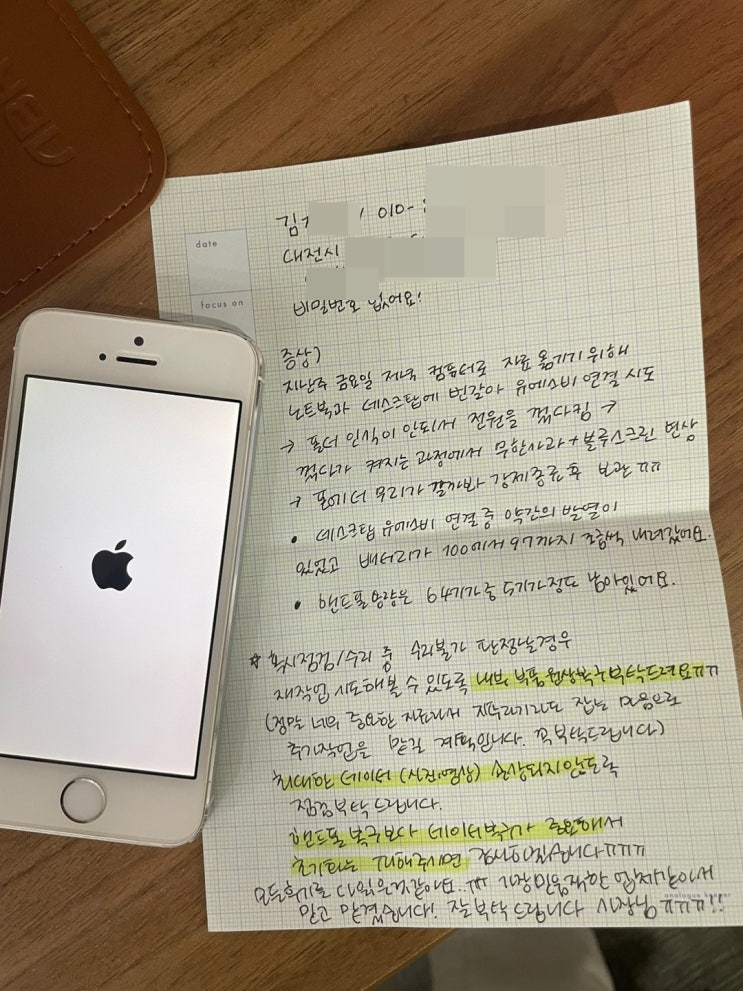 date
focus on
김 / 010-
대전시
비밀번호 없어요!
증상)
지난주 금요일 저녁 컴퓨터로 자료 옮기기 위해
노트북과 데스크탑에 번갈아 유에스비 연결 시도
→ 폴더 인식이 안되서 전원을 껐다킴 →
껐다가 켜지는 과정에서 무한사과+블루스크린 변상
→ 폰에 더 무리가 갈까봐 강제종료 후 보관 ㅠㅠ
• 데스크탑 유에스비 연결 중 약간의 발열이
있었고 배터리가 100에서 97까지 조금씩 내려갔어요.
• 핸드폰 용량은 64기가 중 5기가정도 남아있어요.
☆ 혹시 점검/수리 중 수리불가 판정날경우
재작업 시도해볼 수 있도록 내부 부품 원상복구 부탁드려요ㅠㅠ
(정말 너무 중요한 자료라서 지푸라기라도 잡는 마음으로
추가작업을 맡길 계획입니다. 꼭 부탁드립니다)
최대한 데이터 (사진.영상) 손상되지 않도록
점검 부탁드립니다.
핸드폰 복구보다 데이터복구가 중요해서
초기화는 피해주시면 감사하겠습니다ㅠㅠㅠ
모든후기를 다 읽은것같아요.. 가장 믿음직한 업체같아서
믿고 맡겼습니다! 잘 부탁드립니다 사장님 ㅠㅠㅠ!!
analogue keeper